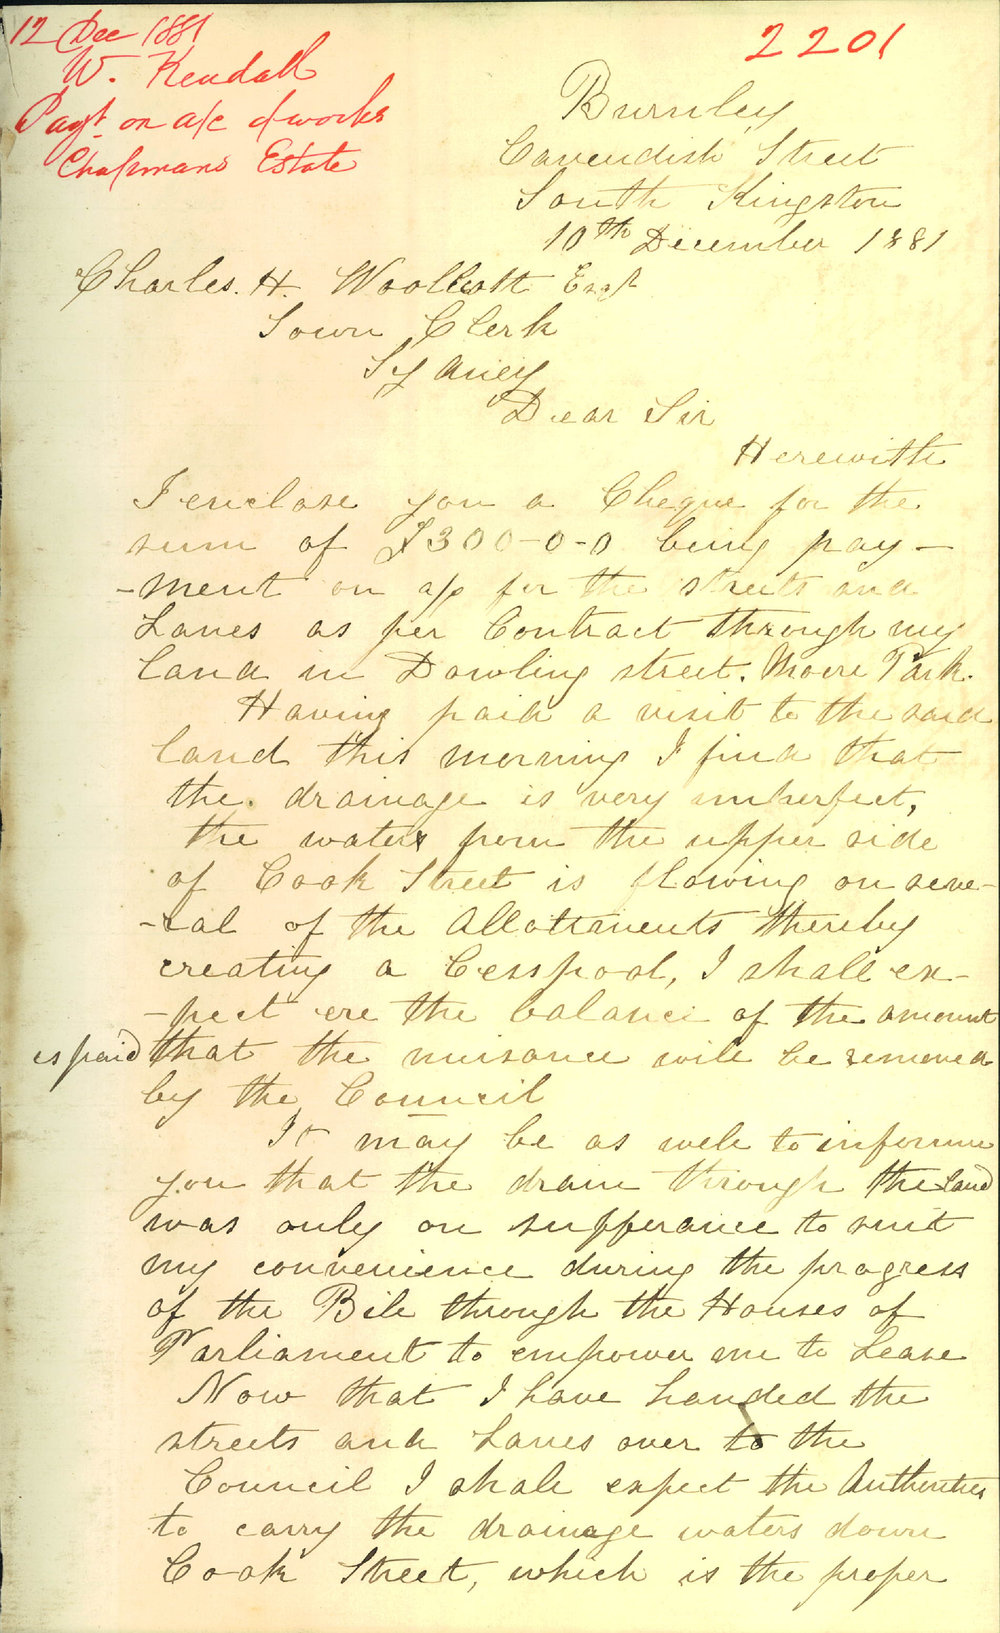 12 Dec 1881
W. Kendall
Payt. on a/c of works
Chapmans Estate
2201
Burnley
Cavendish Street
South Kingston
10th December 1881
Charles. H. Woolcott Esqr
Town Clerk
Sydney
Dear Sir
Herewith
I enclose you a Cheque for the
sum of £300-0-0 being pay-
-ment on a/c for the streets and
Lanes as per Contract through my
land in Dowling street. Moore Park.
Having paid a visit to the said
land this morning I find that
the drainage is very imperfect,
the waters from the upper side
of Cook Street is flowing on seve-
-ral of the Allotments thereby
creating a Cesspool, I shall ex-
-pect ere the balance of the amount
is paid that the nuisance will be removed
by the Council
It may be as well to inform
you that the drain through the land
was only on sufferance to suit
my convenience during the progress
of the Bill through the Houses of
Parliament to empower me to Lease
Now that I have handed the
streets and Lanes over to the
Council I shall expect the Authorities
to carry the drainage waters down
Cook Street, which is the proper